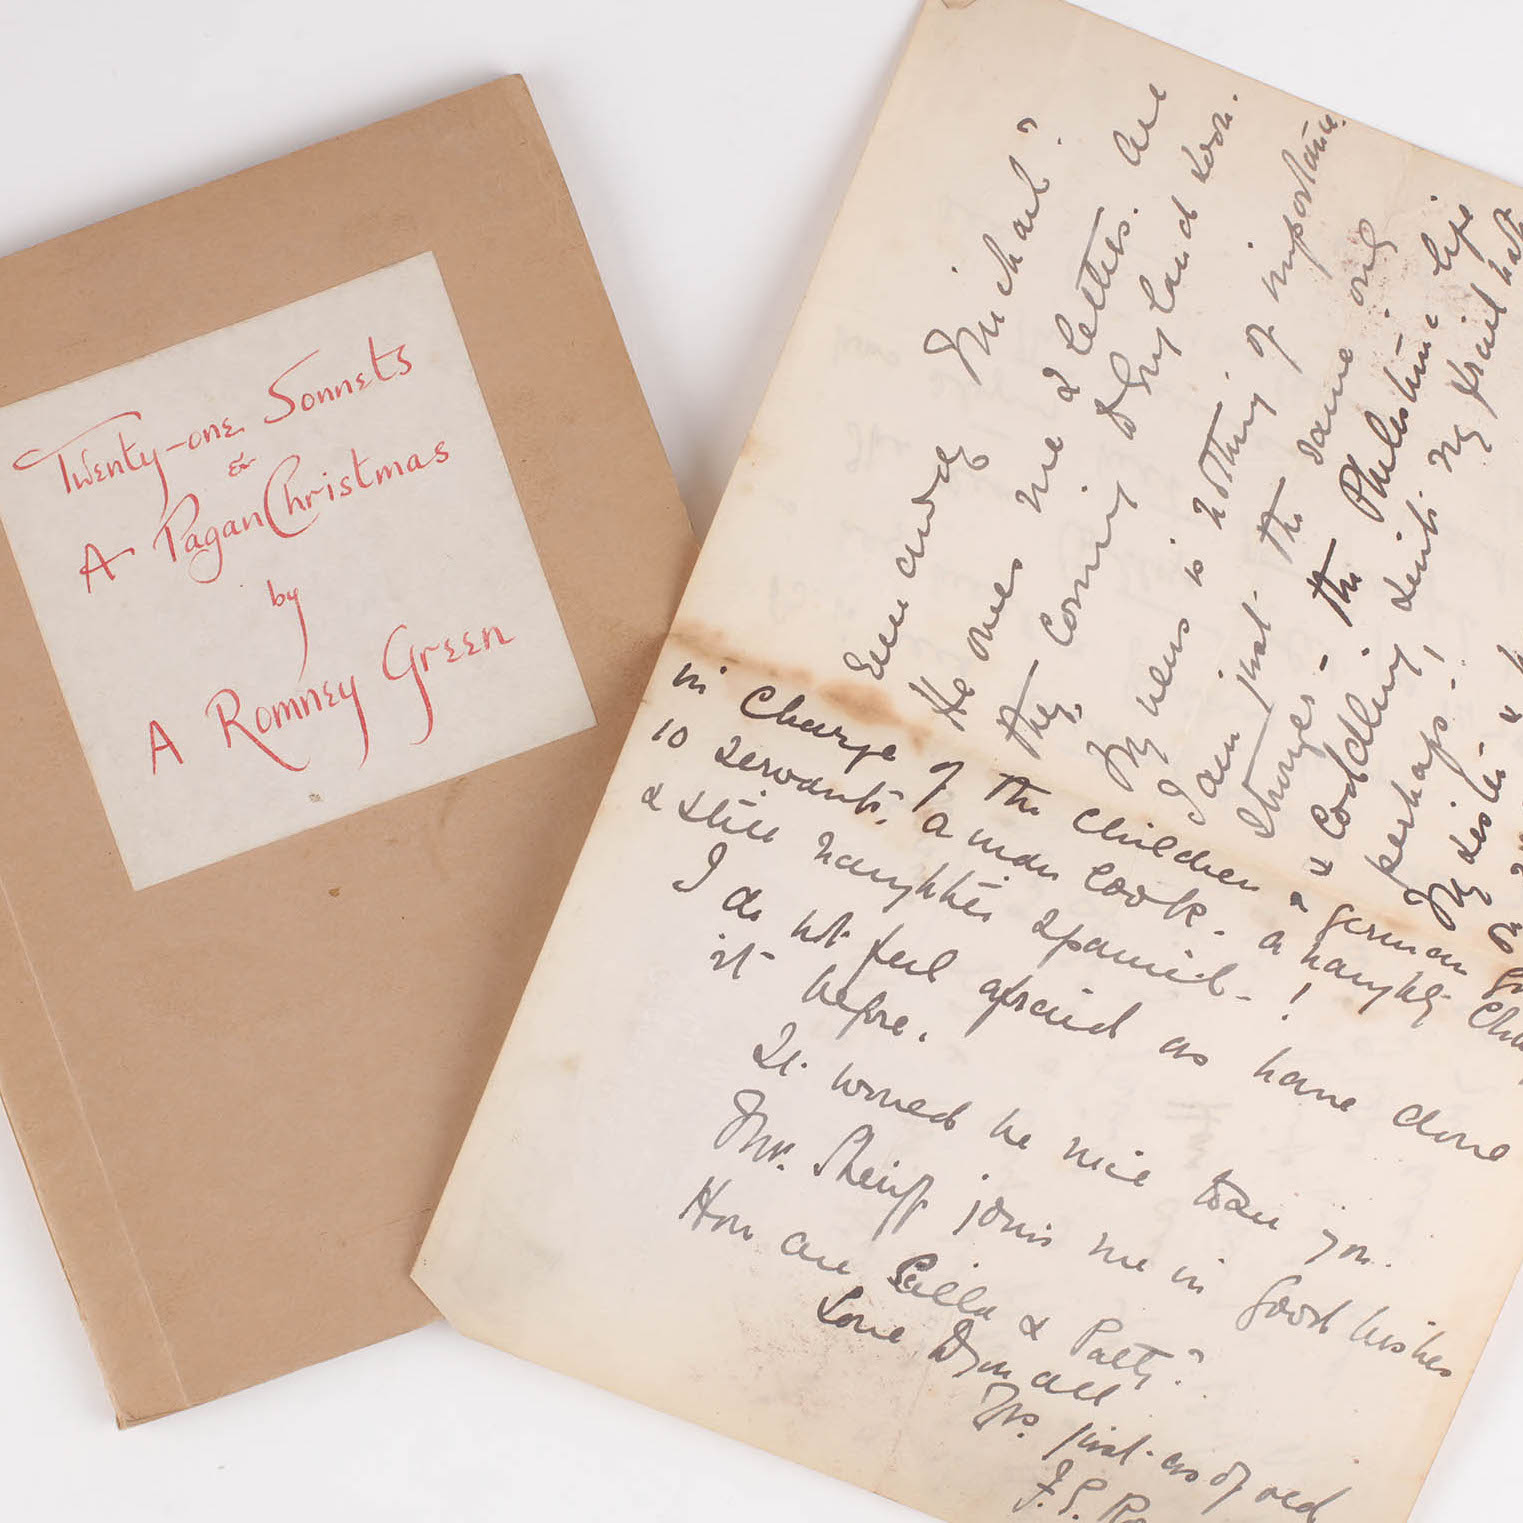 Twenty-one Sonnets
&
A Pagan Christmas
by
A Romney Green
Michael?
He owes me 2 letters. Are
they coming to England soon.
My news is nothing of importance.
I am just the same only
stronger - the Philistine life
& coddling suits my frail
perhaps!
My sister &
in charge of the children & german
10 servants, a man cook - a naughty
& still naughtier spaniel - !
I do not feel afraid as have done
it before.
It would be nice to see you.
Mr. Sheriff joins me in good wishes
How are & Patty?
Love to you all
Yrs. just as of old